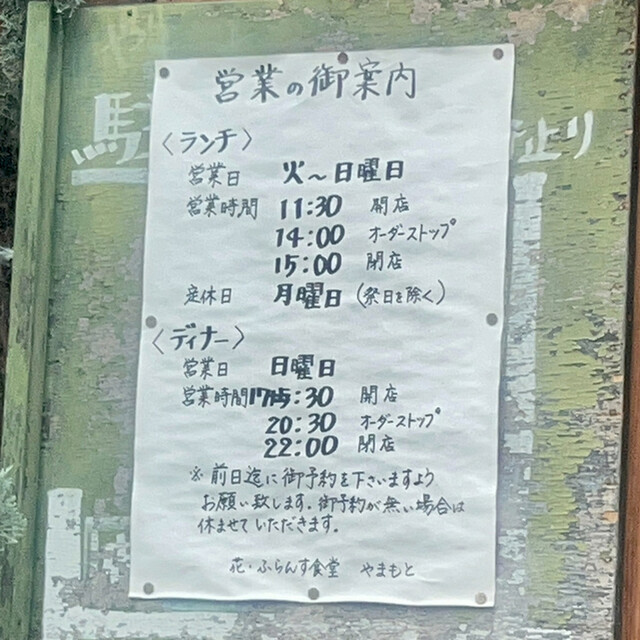 営業の御案内
〈ランチ〉
営業日 火〜日曜日
営業時間 11:30 開店
14:00 オーダーストップ
15:00 閉店
定休日 月曜日(祭日を除く)
〈ディナー〉
営業日 日曜日
営業時間 17:30 開店
20:30 オーダーストップ
22:00 閉店
※前日迄に御予約を下さいますよう
お願い致します。御予約が無い場合は
休ませていただきます。
花・ふらんす食堂 やまもと
駐
止り